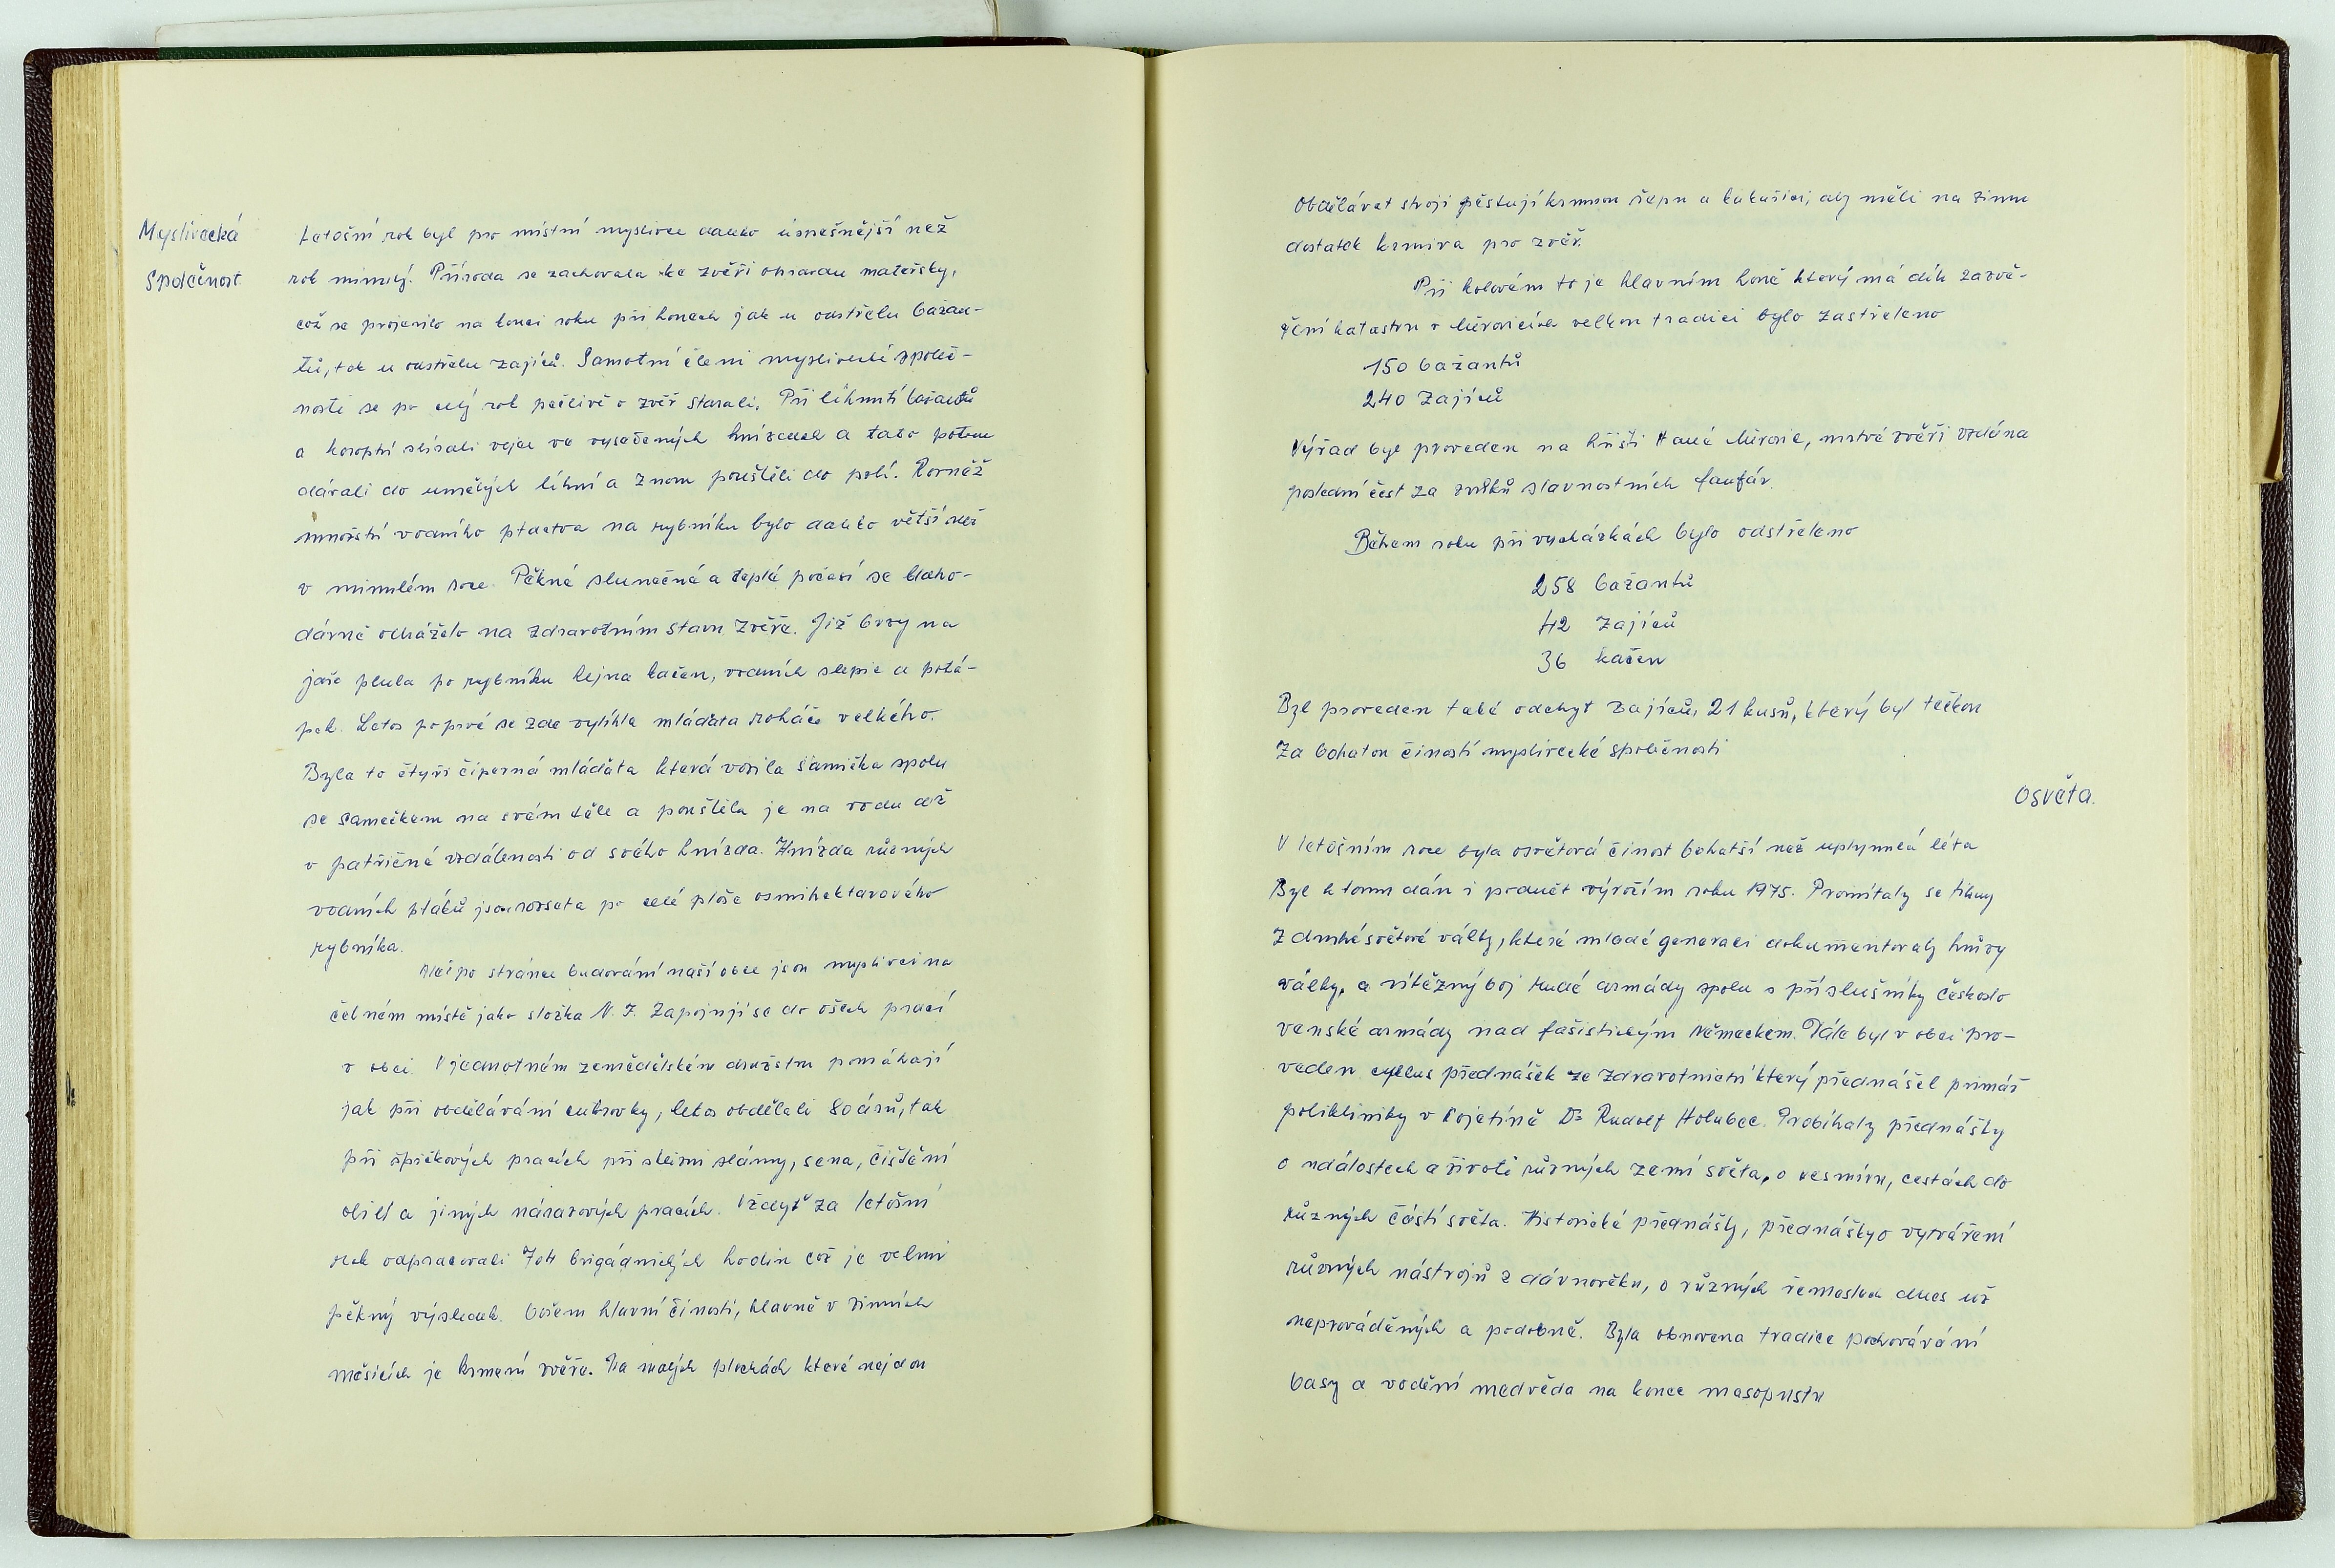 Myslivecká
Společnost.
Letošní rok byl pro místní myslivce daleko úspěšnější než
rok minulý. Příroda se zachovala ke zvěři opravdu mateřsky,
což se projevilo na konci roku při honech jak u odstřelu bažan-
tů, tak u odstřelu zajíců. Samotní členi myslivecké společ-
nosti se po celý rok pečlivě o zvěř starali. Při líhnutí bažantů
a koroptví sbírali vejce ve vysečených hnízdech a tato potom
dávali do umělých líhní a znovu pouštěli do polí. Rovněž
množství vodního ptactva na rybníku bylo daleko větší než
v minulém roce. Pěkné slunečné a teplé počasí se blaho-
dárně odráželo na zdravotním stavu zvěře. Již brzy na
jaře plula po rybníku hejna kačen, vodních slepic a potá-
pek. Letos poprvé se zde vylíhla mláďata roháče velkého.
Byla to čtyři čiperná mláďata která vozila samička spolu
se samečkem na svém těle a pouštěla je na vodu až
v patřičné vzdálenosti od svého hnízda. Hnízda různých
vodních ptáků jsou rozseta po celé ploše osmihektarového
rybníka.
Než po stránce budování naší obce jsou myslivci na
čelném místě jako složka N. F. Zapojují se do všech prací
v obci. V jednotném zemědělském družstvu pomáhají
jak při obdělávání cukrovky, letos obdělali 80 árů, tak
při špičkových pracích při sklizni slámy, sena, čištění
obilí a jiných nárazových pracích. Vždyť za letošní
rok odpracovali 704 brigádnických hodin což je velmi
pěkný výsledek. Ovšem hlavní čiností, hlavně v zimních
měsících je krmení zvěře. Na malých plochách které nejdou
obdělávat stroji pěstují krmnou řepu a kukuřici, aby měli na zimu
dostatek krmiva pro zvěř.
Při kolovém to je hlavním honě který má dík zazvě-
ření katastru v Měrovicích velkou tradici bylo zastřeleno
150 bažantů
240 zajíců
Výřad byl proveden na hřišti Hané Měrovic, mrtvé zvěři vzdána
poslední čest za zvuků slavnostních fanfár.
Během roku při vycházkách bylo odstřeleno
258 bažantů
42 zajíců
36 kačen
Byl proveden také odchyt zajíců, 21 kusů, který byl tečkou
za bohatou čiností myslivecké společnosti
Osvěta.
V letošním roce byla osvětová činost bohatší než uplynulá léta
Byl k tomu dán i podnět výročím roku 1975. Promítaly se filmy
z druhé světové války, které mladé generaci dokumentovaly hrůzy
války, a vítězný boj Rudé armády spolu s příslušníky českoslo
venské armády nad fašistickým Německem. Dále byl v obci pro-
veden cyklus přednášek ze zdravotnictví který přednášel primář
polikliniky v Kojetíně Dr Rudolf Holubec. Probíhaly přednášky
o událostech a životě různých zemí světa, o vesmíru, cestách do
různých částí světa. Historické přednášky, přednášky o vytváření
různých nástrojů z dávnověku, o různých řemeslech dnes už
neprováděných a podobně. Byla obnovena tradice pochovávání
basy a vodění medvěda na konce masopustu